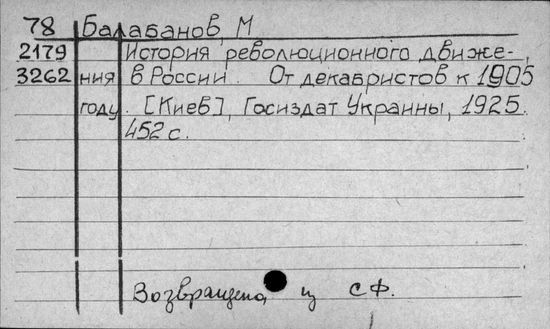 78 Балабанов, М
2179 История революционного движе-
3262 ния в России. От декабристов к 1905
году. [Киев], Госиздат Украины, 1925.
452 с.
Возвращено из СФ.